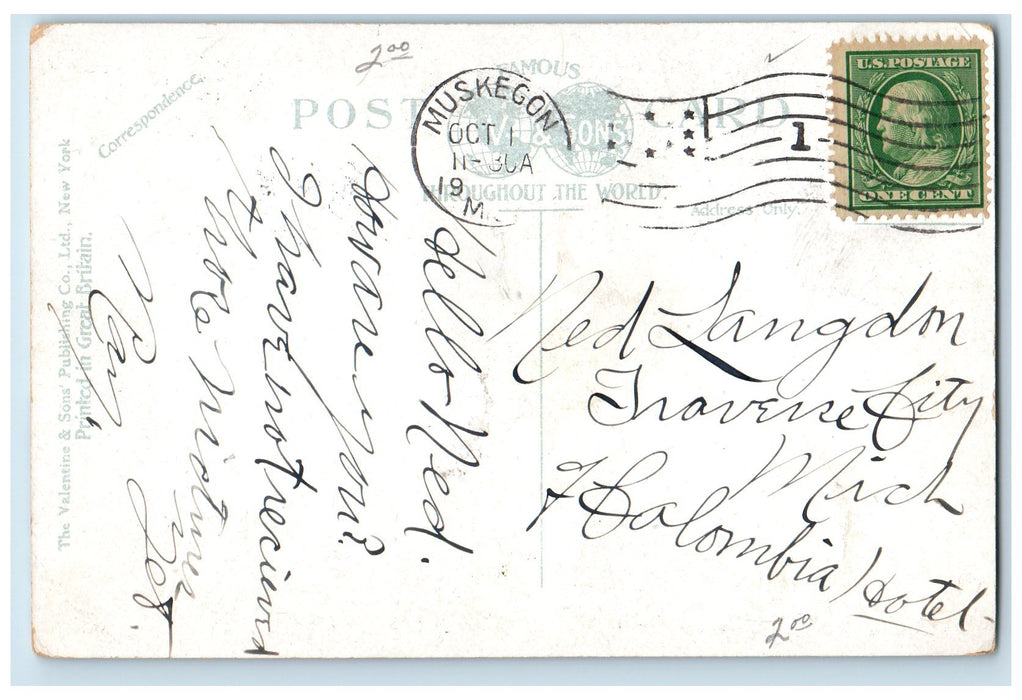 2.00
Correspondence.
FAMOUS
POST CARD
& SONS'
THROUGHOUT THE WORLD.
Address Only.
MUSKEGON
OCT 1
11-30A
19
M
1
U.S.POSTAGE
ONE CENT
The Valentine & Sons' Publishing Co., Ltd., New York
Printed in Great Britain.
Hello Ned.
How are you?
I have not recieved
yore picture
Ray
Ned Langdon
Traverse City
Mich
Hotel
2.00